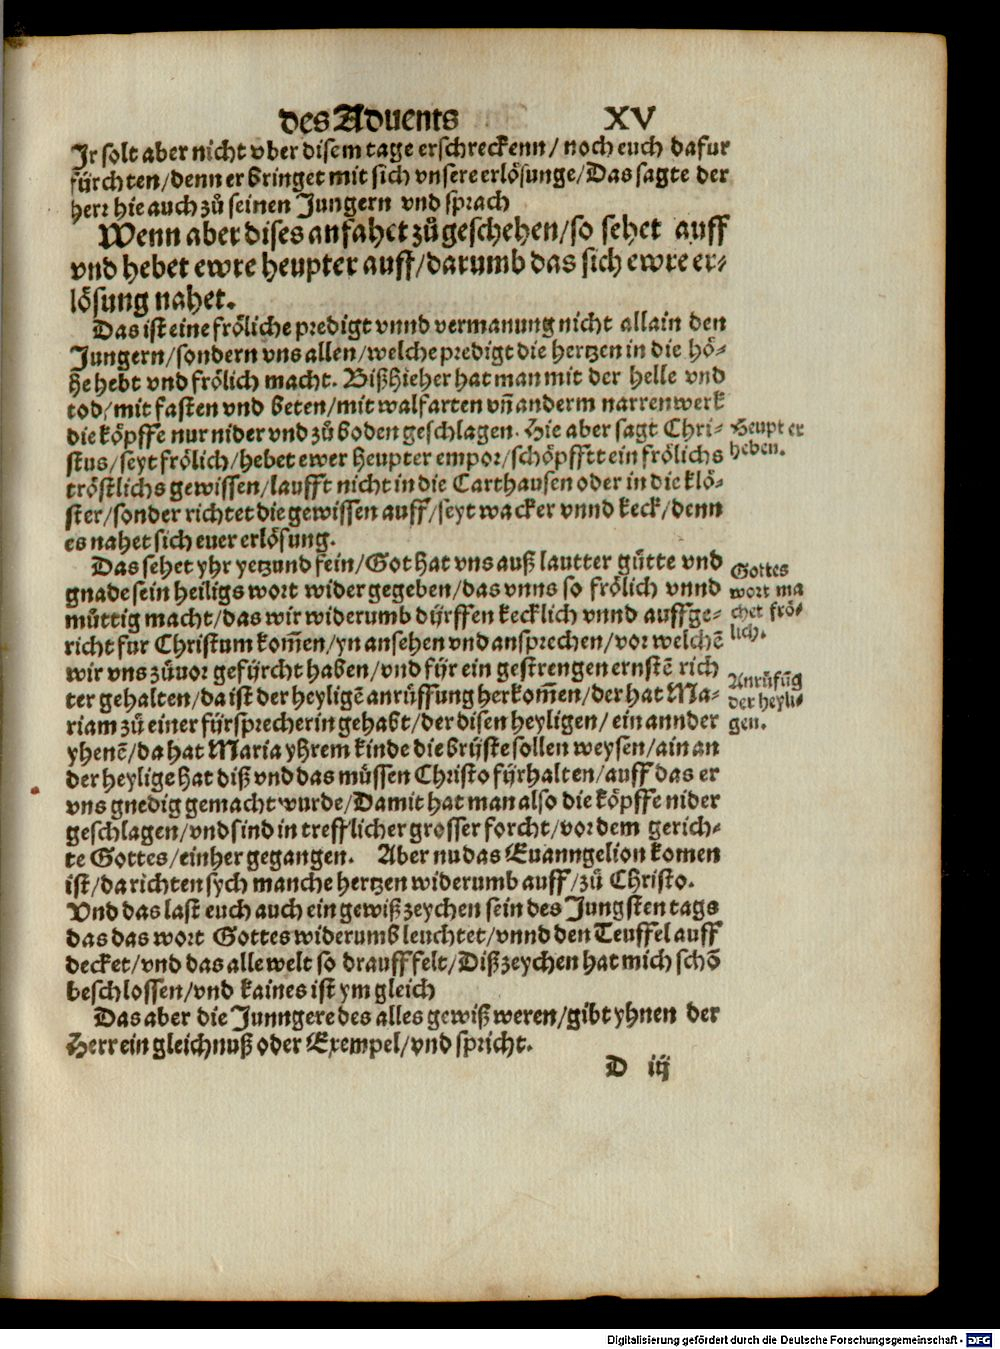 des Aduents XV
Jr solt aber nicht vber disem tage erschreckenn/ noch euch dafur
fürchten/denn er bringet mit sich vnsere erlösunge/Das sagte der
herr hie auch zů seinen Jungern vnd sprach
Wenn aber dises anfahet zů geschehen/so sehet auff
vnd hebet ewre heupter auff/darumb das sich ewre er-
lösung nahet.
Das ist eine fröliche predigt vnnd vermanung nicht allain den
Jungern/sondern vns allen/welche predigt die hertzen in die hö-
he hebt vnd frölich macht. Bißhieher hat man mit der helle vnd
tod/mit fasten vnd beten/mit walfarten vñ anderm narrenwerk
die köpffe nur nider vnd zů boden geschlagen. Hie aber sagt Chri-
stus/seyt frölich/hebet ewer heupter empor/schöpfftt ein frölichs
tröstlichs gewissen/laufft nicht in die Carthausen oder in die klö-
ster/sonder richtet die gewissen auff/seyt wacker vnnd keck/denn
es nahet sich euer erlösung.
Heupter
heben.
Das sehet yhr yetzund fein/Got hat vns auß lautter gůtte vnd
gnade sein heiligs wort wider gegeben/das vnns so frölich vnnd
můttig macht/das wir widerumb dÿrffen kecklich vnnd auffge-
richt fur Christum kom̃en/yn ansehen vnd ansprechen/vor welchẽ
wir vns zůuor gefÿrcht haben/vnd fÿr ein gestrengen ernstẽ rich
ter gehalten/da ist der heyligẽ anrůffung herkom̃en/der hat Ma-
riam zů einer fÿrsprecherin gehabt/der disen heyligen/ein annder
yhenẽ/da hat Maria yhrem kinde die brÿste sollen weysen/ain an
der heylige hat diß vnd das můssen Christo fÿrhalten/auff das er
vns gnedig gemacht wurde/Damit hat man also die köpffe nider
geschlagen/vnd sind in trefflicher grosser forcht/vor dem gerich-
te Gottes/einher gegangen. Aber nu das Euanngelion komen
ist/da richten sych manche hertzen widerumb auff/zů Christo.
Gottes
wort ma
chet frö-
lich.
Anrůfũg
der heyli-
gen.
Vnd das last euch auch ein gewiß zeychen sein des Jungsten tags
das das wort Gottes widerumb leuchtet/vnnd den Teuffel auff
decket/vnd das alle welt so drauff felt/Diß zeychen hat mich schõ
beschlossen/vnd kaines ist ym gleich
Das aber die Junngere des alles gewiß weren/gibt yhnen der
Herr ein gleichnuß oder Exempel/vnd spricht.
D iij
Digitalisierung gefördert durch die Deutsche Forschungsgemeinschaft - DFG